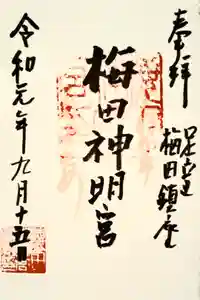 奉拝
足立区
梅田鎮座
梅田神明宮
令和元年九月十五日